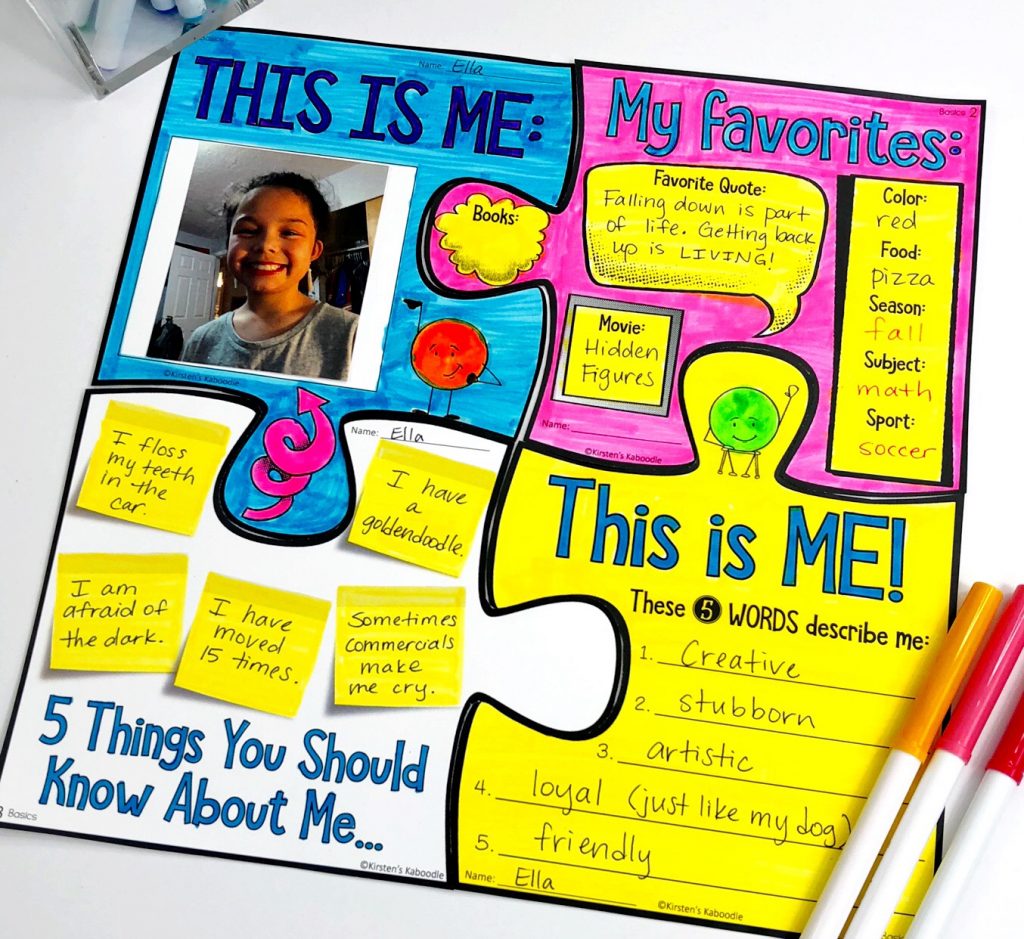 Basics
Name: Ella
THIS IS ME:
Books:
©Kirsten's Kaboodle
Basics 2
My favorites:
Favorite Quote:
Falling down is part
of life. Getting back
up is LIVING!
Movie:
Hidden
Figures
Color:
red
Food:
pizza
Season:
fall
Subject:
math
Sport:
soccer
Name:
©Kirsten's Kaboodle
Name: Ella
I floss
my teeth
in the
car.
I have
a
goldendoodle.
I am
afraid of
the dark.
I have
moved
15 times.
Sometimes
commercials
make
me cry.
5 Things You Should
Know About Me...
3 Basics
©Kirsten's Kaboodle
This is ME!
These 5 WORDS describe me:
1. Creative
2. stubborn
3. artistic
4. loyal (just like my dog)
5. friendly
Name: Ella
©Kirsten's Kaboodle